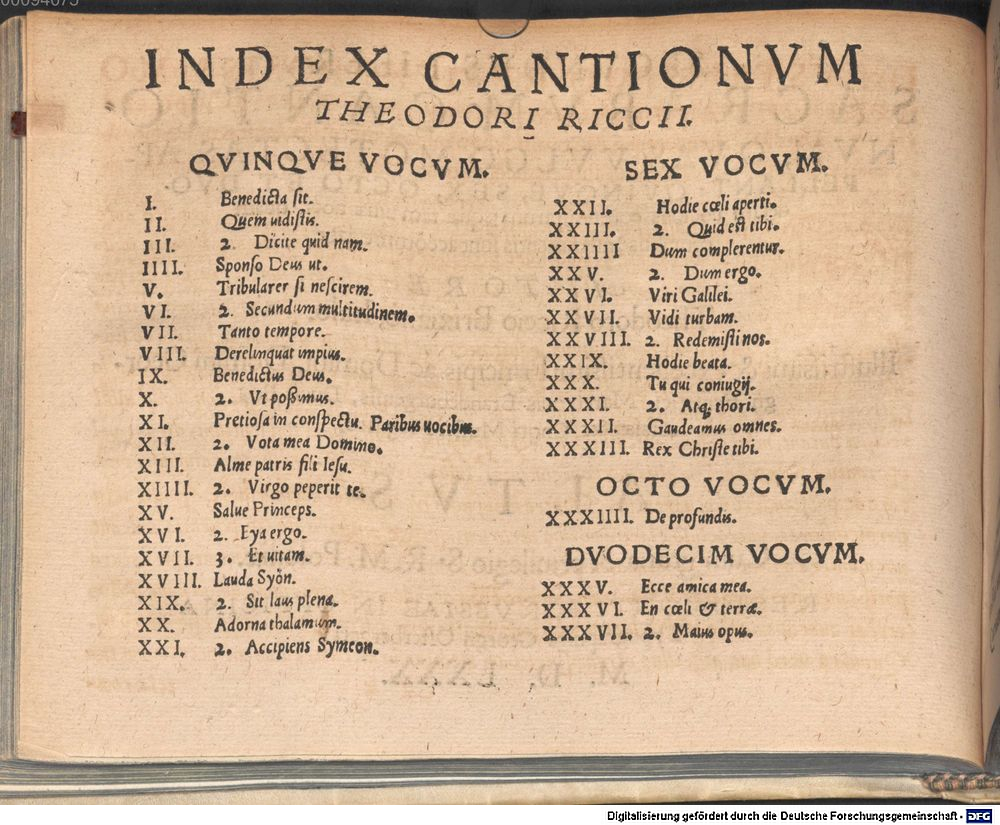 00094075
INDEX CANTIONVM
THEODORI RICCII.
QVINQVE VOCVM.
I. Benedicta sit.
II. Quem uidistis.
III. 2. Dicite quid nam.
IIII. Sponso Deus ut.
V. Tribularer si nescirem.
VI. 2. Secundum multitudinem.
VII. Tanto tempore.
VIII. Derelinquat impius.
IX. Benedictus Deus.
X. 2. Vt possimus.
XI. Pretiosa in conspectu. Paribus uocibus.
XII. 2. Vota mea Domino.
XIII. Alme patris fili Iesu.
XIIII. 2. Virgo peperit te.
XV. Salue Princeps.
XVI. 2. Eya ergo.
XVII. 3. Et uitam.
XVIII. Lauda Syōn.
XIX. 2. Sit laus plena.
XX. Adorna thalamum.
XXI. 2. Accipiens Symeon.
SEX VOCVM.
XXII. Hodie cœli aperti.
XXIII. 2. Quid est tibi.
XXIIII Dum complerentur.
XXV. 2. Dum ergo.
XXVI. Viri Galilei.
XXVII. Vidi turbam.
XXVIII. 2. Redemisti nos.
XXIX. Hodie beata.
XXX. Tu qui coniugij.
XXXI. 2. Atq; thori.
XXXII. Gaudeamus omnes.
XXXIII. Rex Christe tibi.
OCTO VOCVM.
XXXIIII. De profundis.
DVODECIM VOCVM.
XXXV. Ecce amica mea.
XXXVI. En cœli & terræ.
XXXVII. 2. Maius opus.
Digitalisierung gefördert durch die Deutsche Forschungsgemeinschaft - DFG